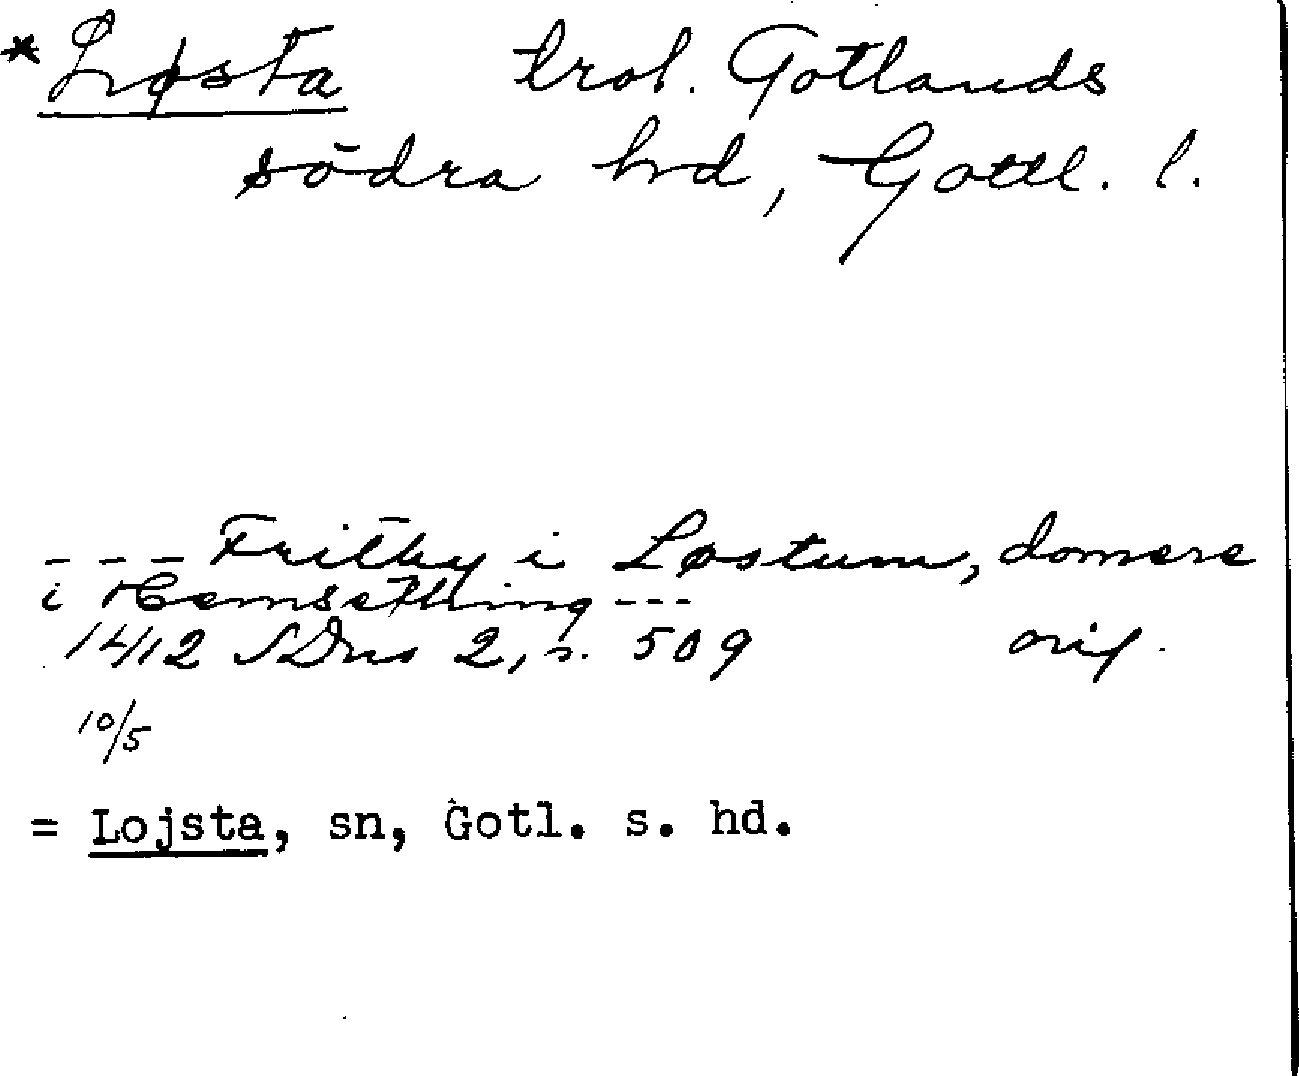 *Løsta trol. Gotlands
södra hd, Gottl. l.
--- Fritby i Løstum, domere
i Hemsething ---
1412 SDns 2, s. 509 orig.
10/5
= Lojsta, sn, Gotl. s. hd.